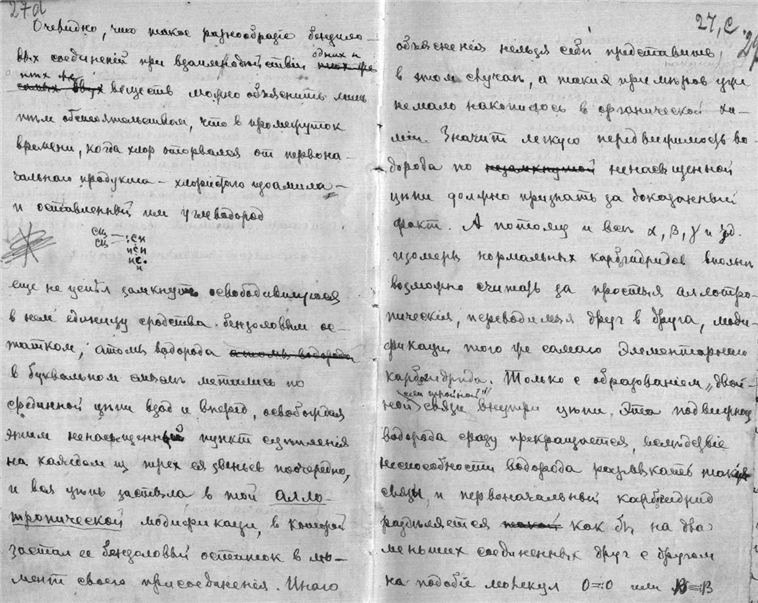 27 d
Очевидно, что такое разнообразіе бензило-
выхъ соединеній при взаимнодѣйствіи однихъ и
тѣхъ же веществъ можно объяснить лишь
тѣмъ обстоятельствомъ, что в промежуток
времени, когда хлор оторвался от первона-
чальнаго продукта – хлористого изоамила –
и оставленный им углеводород
CH₃ CH
CH₃ HCH
HC
H
еще не успѣл замкнуть освободившуюся
в нем единицу сродства бензоловым ос-
татком, атомы водорода атомы водорода
в буквальном смыслѣ метались по
срединной цѣпи взад и вперед, освобождая
этим ненасыщенный пункт сцѣпленія
на каждом из трех ея звеньев поочередно,
и вся цѣпь застыла в той алло-
тропической модификаціи, в которой
застал ее бензоловый остаток в мо-
мент своего присоединенія. Иного
27, c.
объясненія нельзя себѣ представить
в этом случаѣ, а таких примѣров уже
немало накопилось в органической хи-
міи. Значит легкую передвижимость во-
дорода по незамкнутой ненасыщенной
цѣпи должно признать за доказанный
факт. А потому и всѣ α, β, γ и др.
изомеры нормальных карбгидридов вполнѣ
возможно считать за простыя аллотро-
пическія, переводимыя друг в друга, моди-
фикаціи того же самаго элементарнаго
карбгидрида. Только с образованіем „двой-
или тройной"
ной связи внутри цѣпи. Эта подвижность
водорода сразу прекращается, вслѣдствіе
неспособности водорода разъѣкать такія
связи, и первоначальный карбгидрид
раздѣляется как бы на два
меньших соединенных друг с другом
на подобіе молекул O=O или B=B